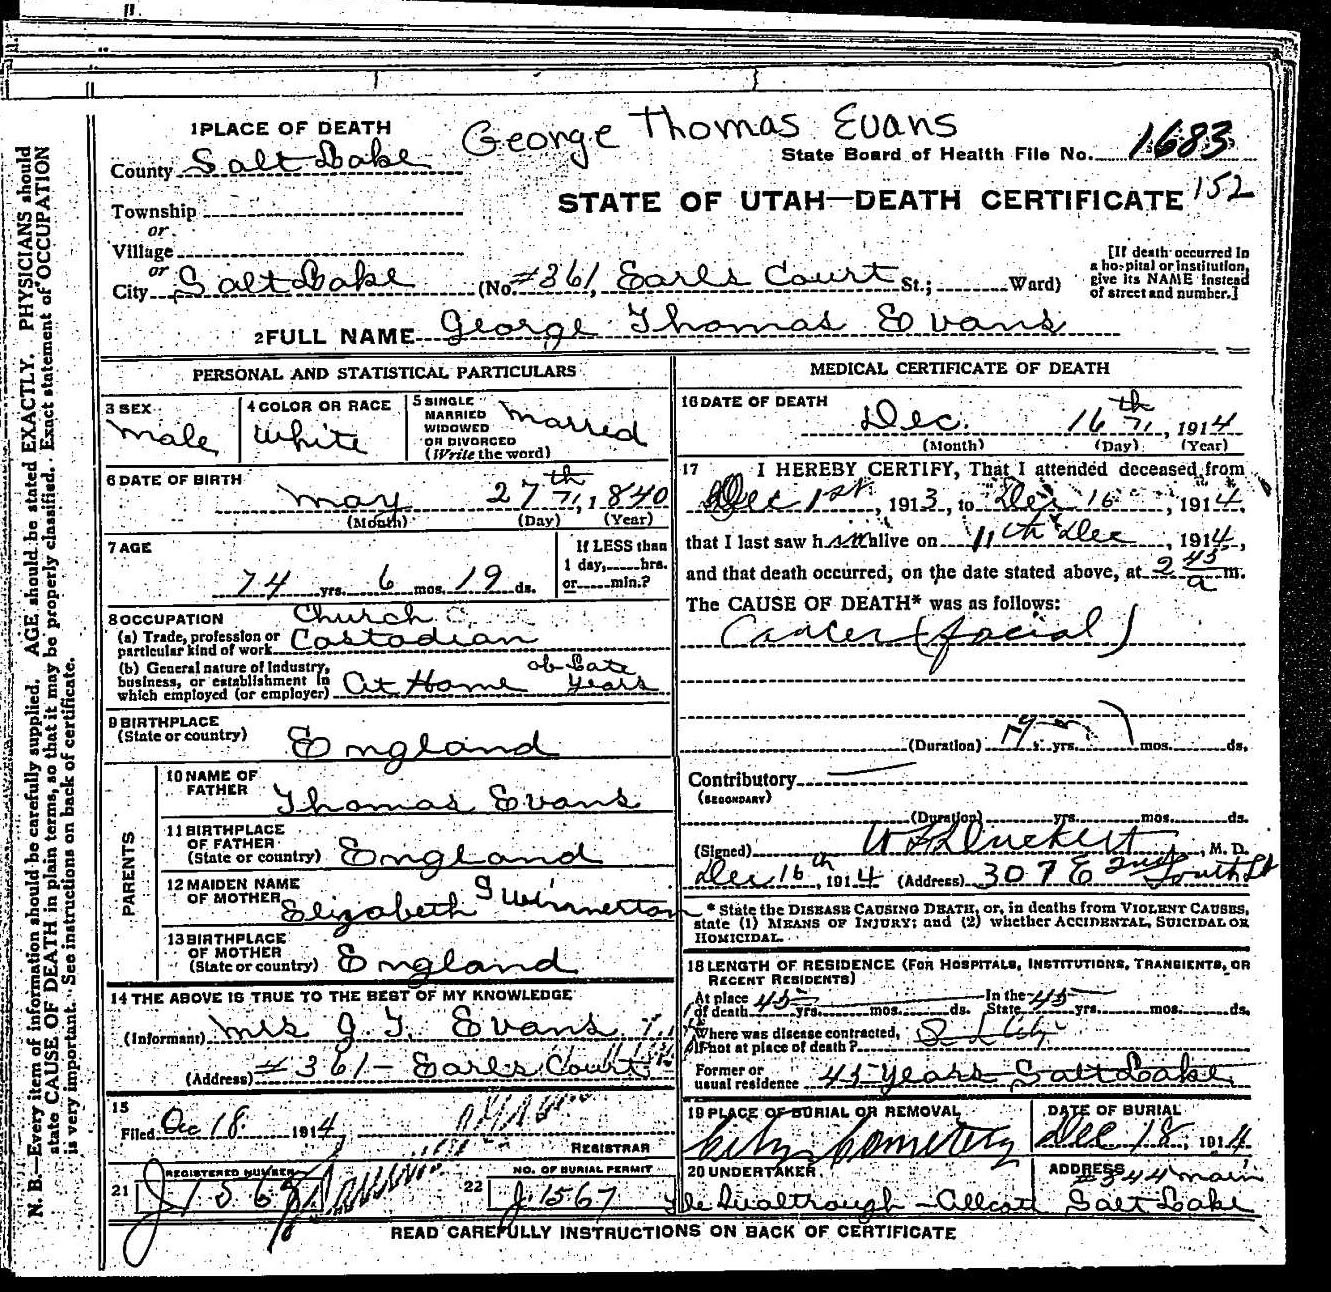 George Thomas Evans
1 PLACE OF DEATH
County Salt Lake
State Board of Health File No. 1683
152
Township
or
STATE OF UTAH—DEATH CERTIFICATE
Village
or
City Salt Lake (No. #361, Earls Court St.; Ward)
[If death occurred in
a hospital or institution,
give its NAME instead
of street and number.]
2 FULL NAME George Thomas Evans
PERSONAL AND STATISTICAL PARTICULARS
3 SEX
male
4 COLOR OR RACE
White
5 SINGLE
MARRIED
WIDOWED
OR DIVORCED
(Write the word)
Married
6 DATE OF BIRTH
May 27th, 1840
(Month) (Day) (Year)
7 AGE
74 yrs. 6 mos. 19 ds.
If LESS than
1 day, hrs.
or min.?
8 OCCUPATION
(a) Trade, profession or
particular kind of work
Church
Costodian
(b) General nature of Industry,
business, or establishment in
which employed (or employer)
At Home of Late
years
9 BIRTHPLACE
(State or country)
England
PARENTS
10 NAME OF
FATHER
Thomas Evans
11 BIRTHPLACE
OF FATHER
(State or country) England
12 MAIDEN NAME
OF MOTHER
Elizabeth Swinnerton
13 BIRTHPLACE
OF MOTHER
(State or country) England
14 THE ABOVE IS TRUE TO THE BEST OF MY KNOWLEDGE
(Informant) Mrs G. T. Evans
(Address) #361- Earls Court
15
Filed Dec 18 1914
REGISTRAR
REGISTERED NUMBER
21 J 1568
NO. OF BURIAL PERMIT
22 J. 1567
MEDICAL CERTIFICATE OF DEATH
16 DATE OF DEATH
Dec. 16th, 1914
(Month) (Day) (Year)
17 I HEREBY CERTIFY, That I attended deceased from
Dec 1st, 1913, to Dec 16, 1914,
that I last saw him alive on 11th Dec, 1914,
and that death occurred, on the date stated above, at 2 45 a m.
The CAUSE OF DEATH* was as follows:
Cancer (facial)
(Duration) yrs. mos. ds.
Contributory
(SECONDARY)
(Duration) yrs. mos. ds.
(Signed) , M. D.
Dec 16th, 1914 (Address) 307 E 2nd South St
* State the DISEASE CAUSING DEATH, or, in deaths from VIOLENT CAUSES,
state (1) MEANS OF INJURY; and (2) whether ACCIDENTAL, SUICIDAL OR
HOMICIDAL.
18 LENGTH OF RESIDENCE (FOR HOSPITALS, INSTITUTIONS, TRANSIENTS, OR
RECENT RESIDENTS)
At place
of death 45 yrs. mos. ds.
In the
State 45 yrs. mos. ds.
Where was disease contracted,
if not at place of death? S L City
Former or
usual residence 45 years Salt Lake
19 PLACE OF BURIAL OR REMOVAL
City Cemetery
DATE OF BURIAL
Dec 18, 1914
20 UNDERTAKER
ADDRESS
#344 Main
Salt Lake
READ CAREFULLY INSTRUCTIONS ON BACK OF CERTIFICATE
N. B.—Every item of information should be carefully supplied. AGE should be stated EXACTLY. PHYSICIANS should
state CAUSE OF DEATH in plain terms, so that it may be properly classified. Exact statement of OCCUPATION
is very important. See instructions on back of certificate.